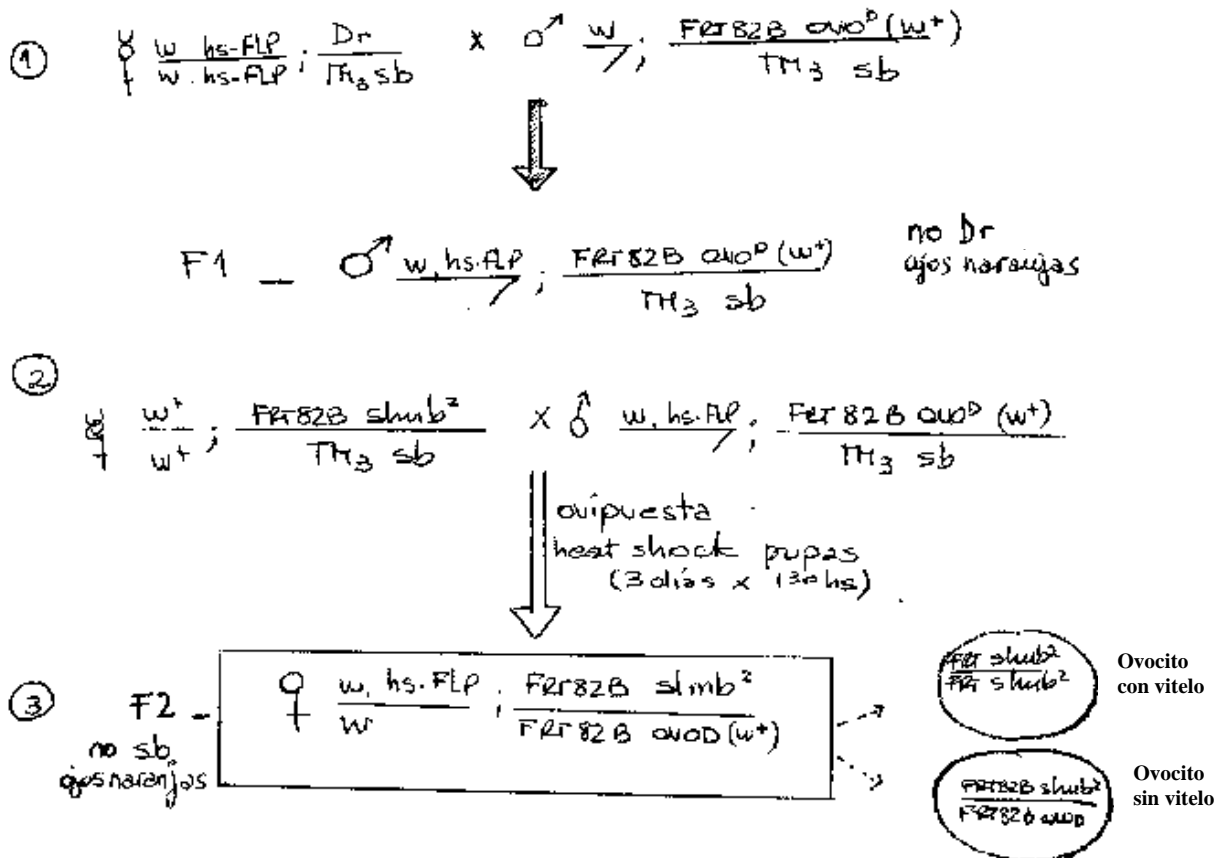 ① ♀ w hs-FLP / w. hs-FLP ; Dr / TM3 sb x ♂ w / ; FRT82B ovoD (w+) / TM3 sb
F1 – ♂ w, hs.FLP / ; FRT82B ovoD (w+) / TM3 sb no Dr
ojos naranjas
②
♀ w+ / w+ ; FRT82B slmb² / TM3 sb x ♂ w, hs.FLP / ; FRT82B ovoD (w+) / TM3 sb
ovipuesta
heat shock pupas
(3 días x 130 hs)
③ F2 – ♀ w, hs.FLP / w ; FRT82B slmb² / FRT82B ovoD (w+)
no sb
ojos naranjas
FRT slmb² / FRT slmb²
Ovocito
con vitelo
FRT82B slmb² / FRT82B ovoD
Ovocito
sin vitelo